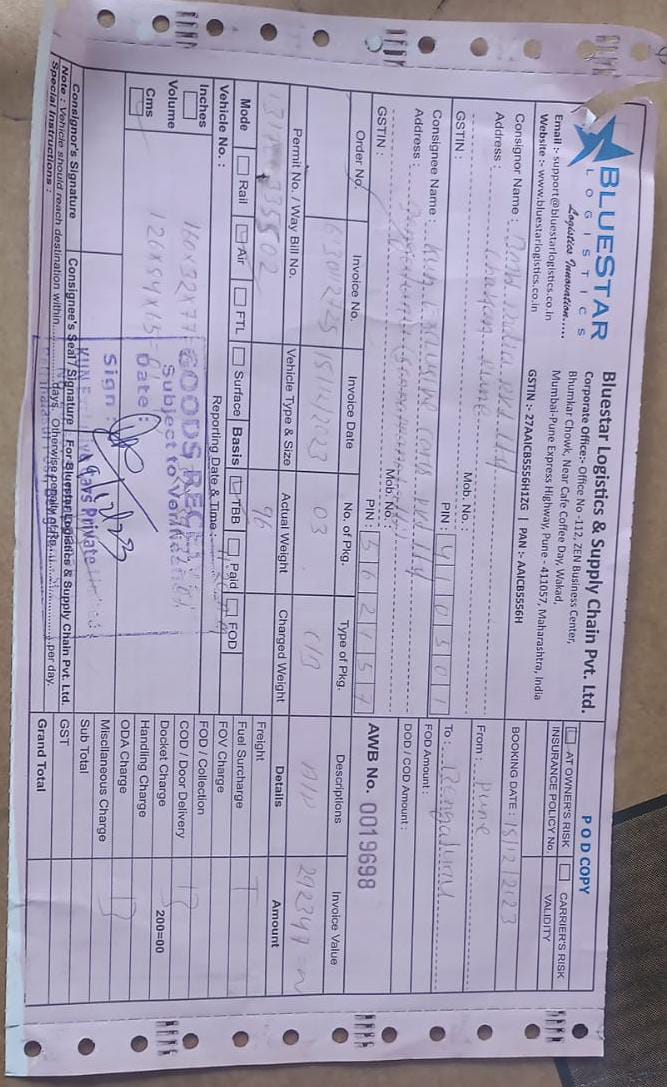 BLUESTAR
LOGISTICS
Logistics Innovation.....
Email :- support@bluestarlogistics.co.in
Website :- www.bluestarlogistics.co.in
Bluestar Logistics & Supply Chain Pvt. Ltd.
Corporate Office:- Office No -112, ZEN Business Center,
Bhumkar Chowk, Near Cafe Coffee Day, Wakad,
Mumbai-Pune Express Highway, Pune - 411057, Maharashtra, India
GSTIN :- 27AAICB5556H1ZG | PAN :- AAICB5556H
POD COPY
AT OWNER'S RISK CARRIER'S RISK
INSURANCE POLICY No. VALIDITY
BOOKING DATE : 15/12/2023
From : Pune
To : Bengaluru
FOD Amount :
DOD / COD Amount :
AWB No. 0019698
Consignor Name : BMW India Pvt Lty
Address : Chakan Pune
Mob. No. :
GSTIN : PIN : 410501
Consignee Name : Kun Exclusive Cars Pvt Lty
Address :
Mob. No. :
GSTIN : PIN : 562157
Order No. Invoice No. Invoice Date No. of Pkg. Type of Pkg. Descriptions Invoice Value
15/12/2023 03 C/B A/P 292347
Permit No. / Way Bill No. Vehicle Type & Size Actual Weight Charged Weight Details Amount
96
Mode Rail Air FTL Surface Basis TBB Paid FOD
Vehicle No. : Reporting Date & Time :
Inches
Volume
Cms
160x32x77
126x54x15
GOODS RECEIVED
Subject to Verification
Date :
Sign :
19/12/23
KUN Exclusive Cars Private Limited
Freight T
Fuel Surcharge
FOV Charge
FOD / Collection
COD / Door Delivery
Docket Charge 200=00
Handling Charge
ODA Charge B
Miscllaneous Charge
Sub Total
GST
Grand Total
Consignor's Signature Consignee's Seal / Signature For Bluestar Logistics & Supply Chain Pvt. Ltd.
Note : Vehicle should reach destination within days. Otherwise penalty of Rs. per day.
Special Instructions :